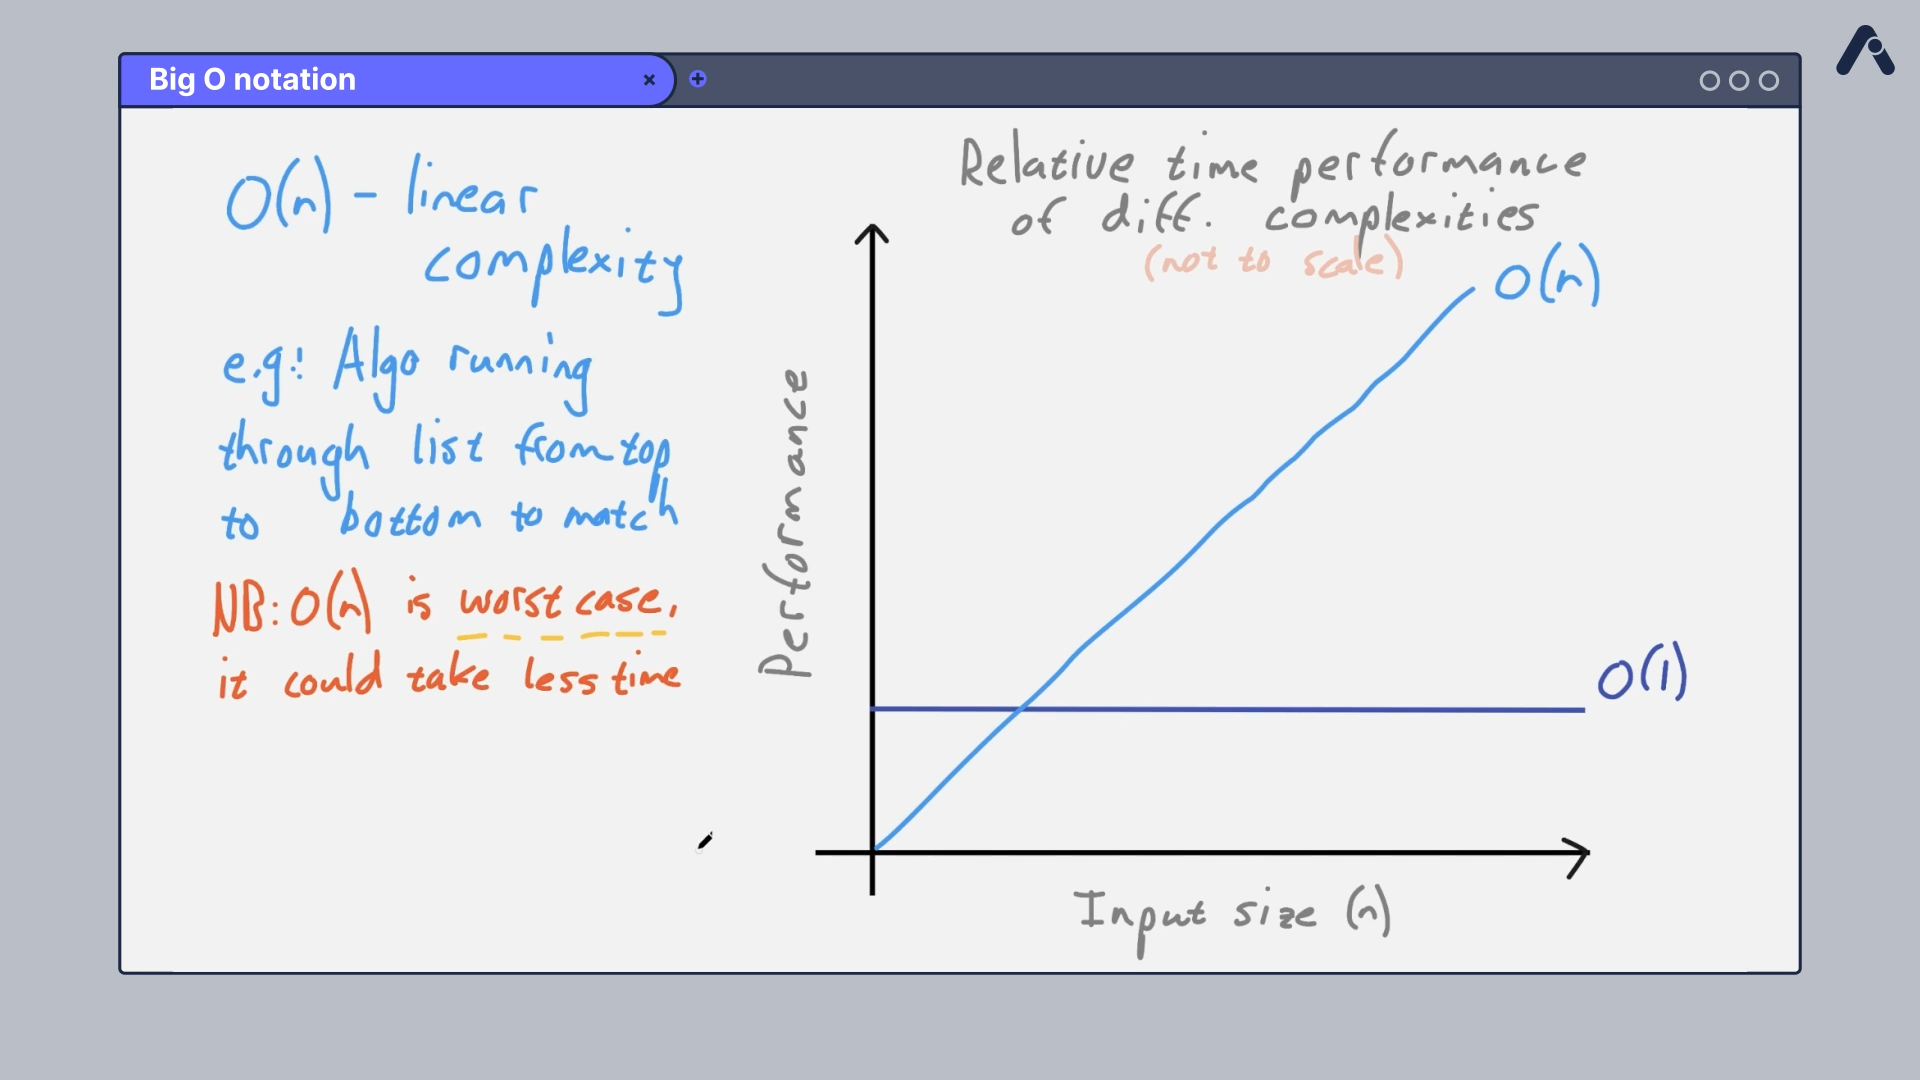 Big O notation
O(n) - linear
complexity
e.g.: Algo running
through list from top
to bottom to match
NB: O(n) is worst case,
it could take less time
Relative time performance
of diff. complexities
(not to scale)
O(n)
Performance
O(1)
Input size (n)